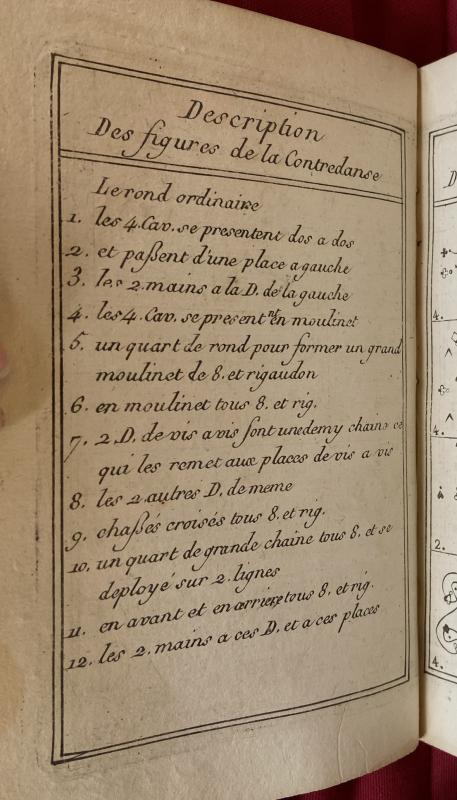 Description
Des figures de la Contredanse
Le rond ordinaire
1. les 4. Cav. se presentent dos a dos
2. et paßent d'une place a gauche
3. les 2. mains a la D. de la gauche
4. les 4. Cav. se present.nt en moulinet
5. un quart de rond pour former un grand
moulinet de 8. et rigaudon
6. en moulinet tous 8. et rig.
7. 2. D. de vis a vis font une demy chaine ce
qui les remet aux places de vis a vis
8. les 2. autres D. de meme
9. chaßés croisés tous 8. et rig.
10. un quart de grande chaine tous 8. et se
deployé sur 2. lignes
11. en avant et en arriere tous 8. et rig.
12. les 2. mains a ces D. et a ces places
D
4.
4.
2.
4.